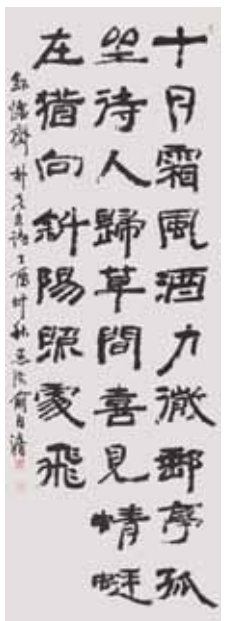 十月霜風酒力微郵亭孤
坐待人歸草間喜見蜻蜓
在猶向斜陽照處飛
詩丁酉仲秋